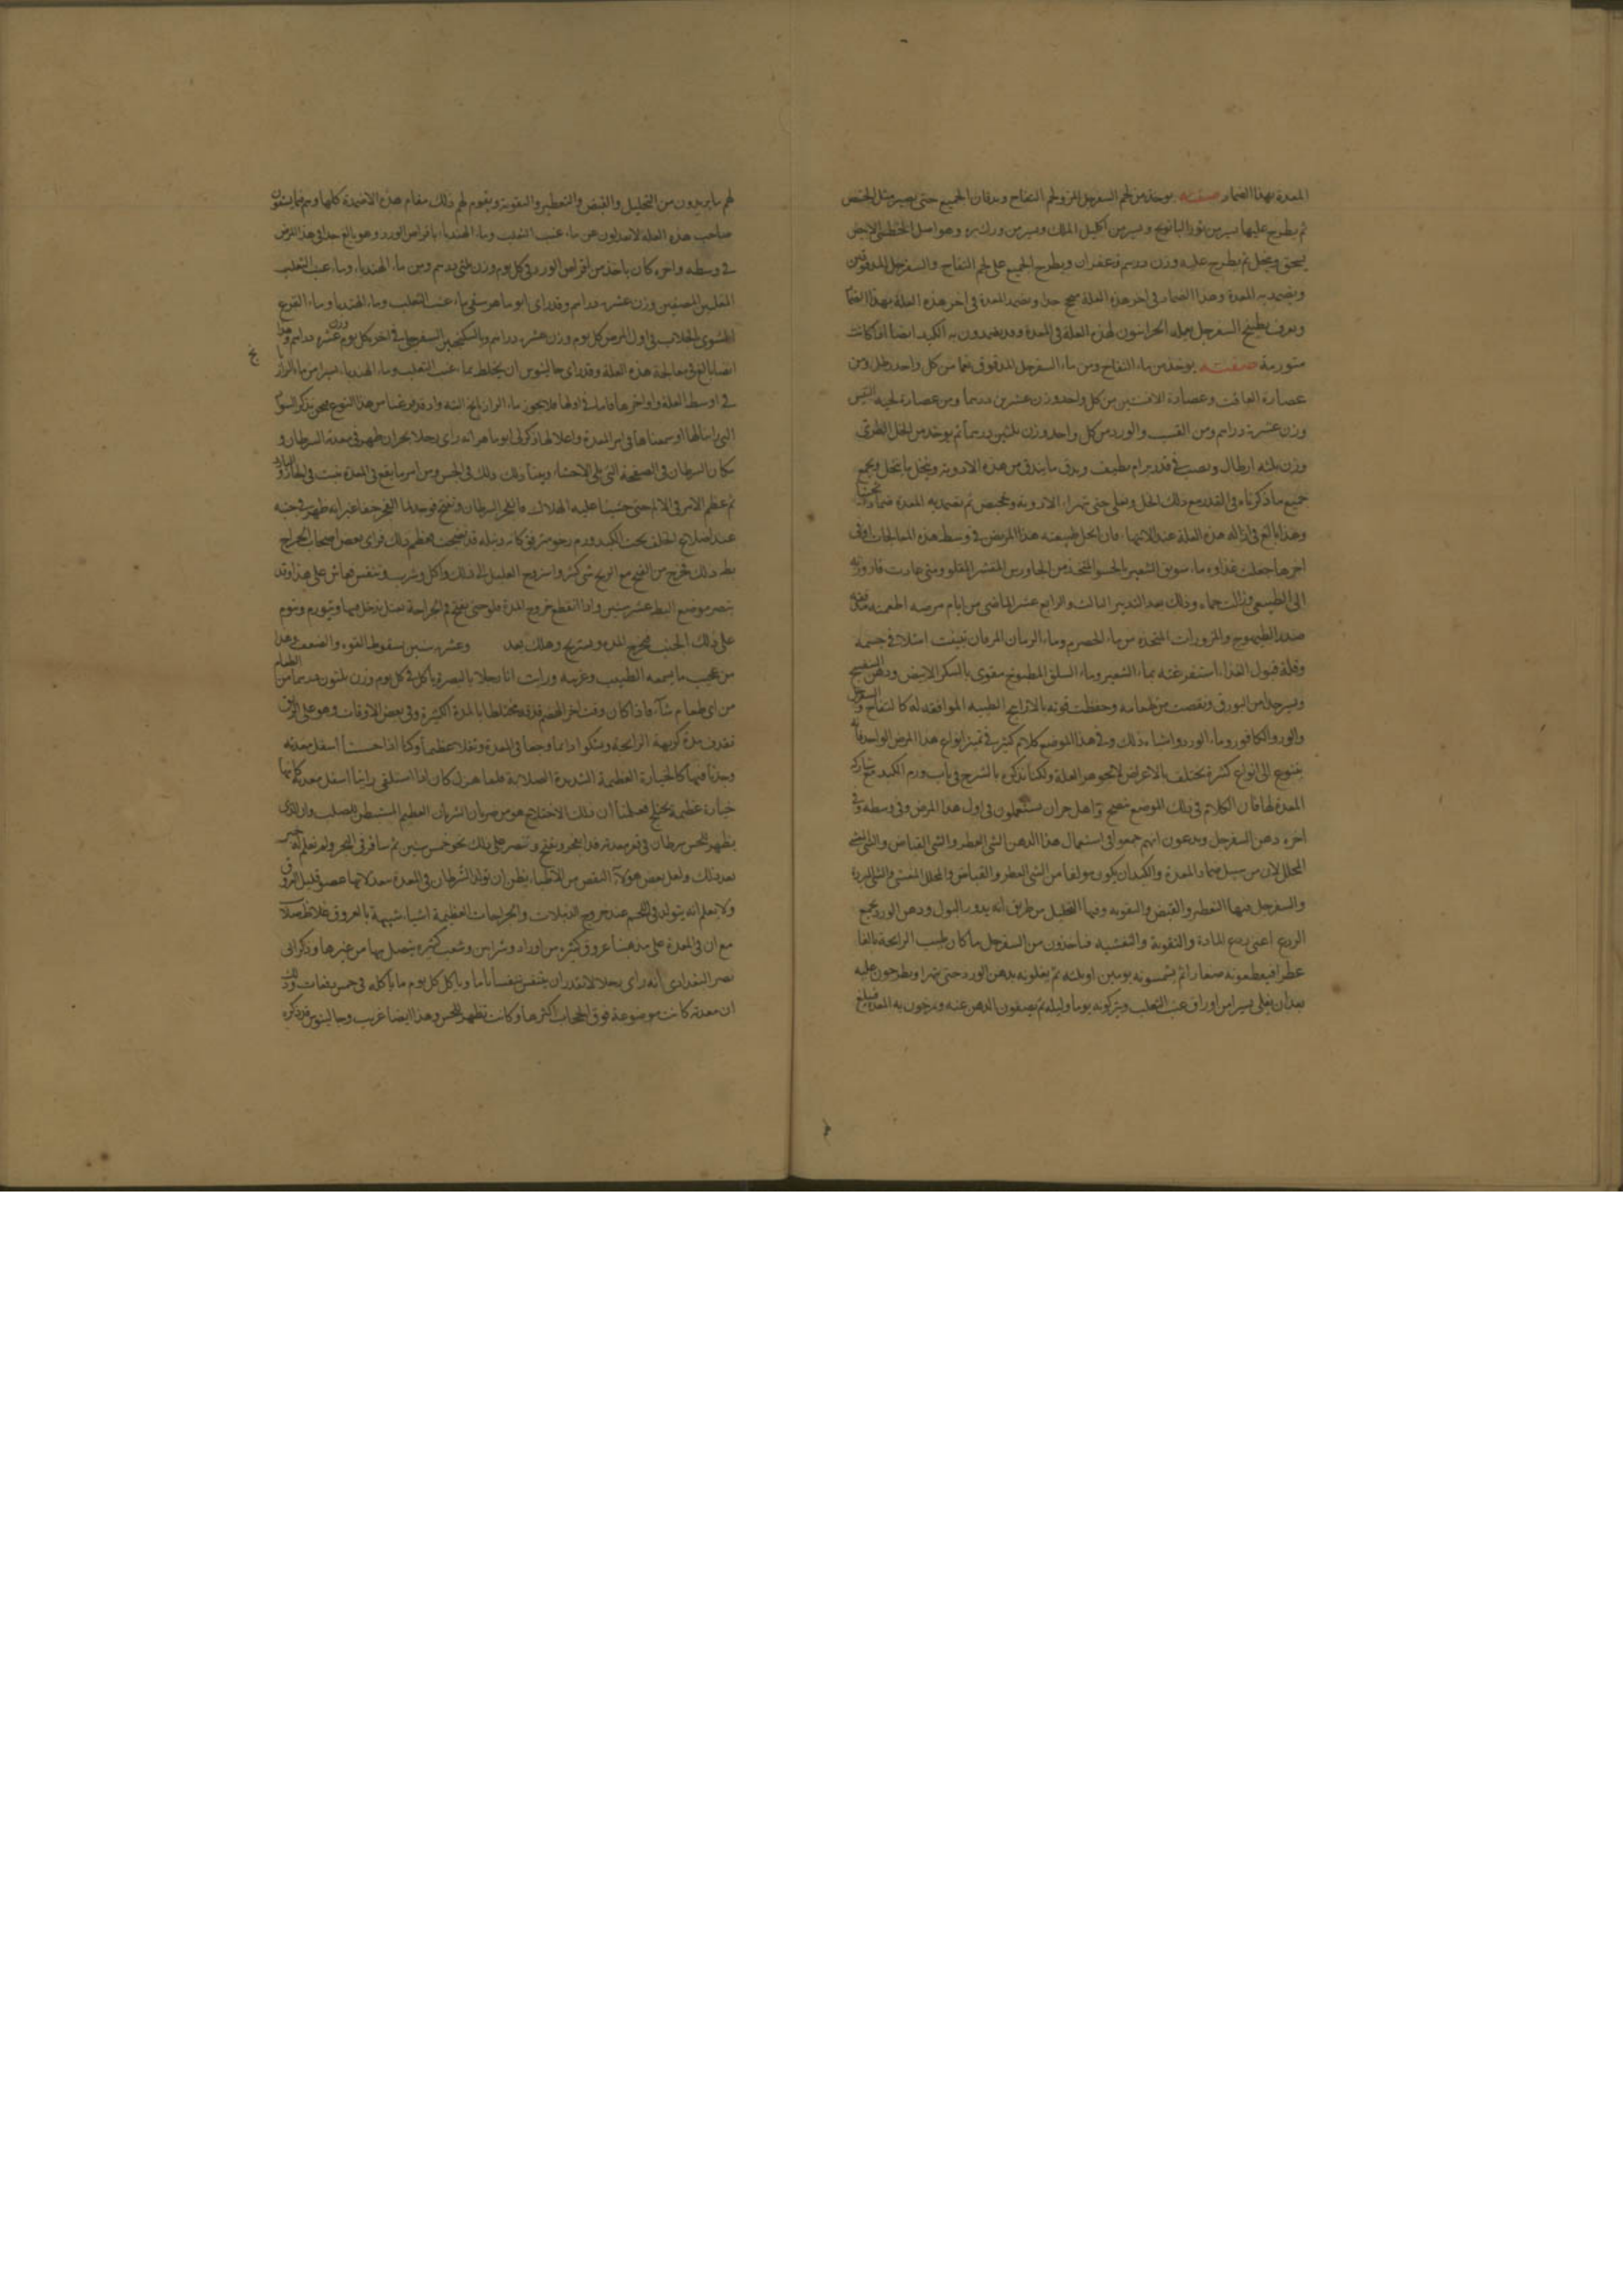 المعدة بهذا الضماد صفته يوخذ من لحم السفرجل المز ولحم التفاح ويدقان الجميع حتى يصير مثل الخبيص
ثم يطرح عليها يسير من نور البابونج ويسير من اكليل الملك ويسير من وهو اصل الخطمى الابيض
يسحق وينخل ثم يطرح عليه وزن درهم زعفران ويطرح الجميع على لحم التفاح والسفرجل المدقوقين
ويضمد به المعدة وهذا الضماد فى اخر هذه العلة جدا ويضمد المعدة فى اخر هذه العلة بهذا الضماد
ويعرف بطبيخ السفرجل لهذه العلة فى المعدة وقد يضمدون به الكبد ايضا اذا كانت
متورمة صفته يوخذ من ماء التفاح ومن ماء السفرجل المدقوق من كل واحد رطل ومن
عصارة الغافت وعصارة الافسنتين من كل واحد وزن عشرين درهما ومن عصارة لحية التيس
وزن عشرة دراهم ومن القسب والورد من كل واحد وزن ثلثين درهما ثم يوخذ من الخل
وزن ثلثه ارطال ويصب فى قدر برام نظيف ويدق ما يندق من هذه الادوية وينخل ما ينخل ويجمع
جميع ما ذكرناه فى القدر مع ذلك الخل ويغلى حتى تتهرا الادوية ثم يضمد به المعدة ضمادا
وهذا بالغ فى ازالة هذه العلة عند الانتهاء فان انحل طبيعته هذا المريض فى وسط هذه المعالجات او فى
اخرها جعلت غذاوه ماء سويق الشعير بالحسو المتخذ من الجاورس المقشر المقلو ومتى عادت قارورته
الى الطبيعى وزالت حماه وذلك بعد التدبير الثالث والرابع عشر الماضى من ايام مرضه اطعمته
الطيهوج والمزورات المتخذه من ماء الحصرم وماء الرمان المز فان بقيت امتلا فى جسمه
وقلة قبول الغذاء استفرغته بماء الشعير وماء السلق المطبوخ مقوى بالسكر الابيض ودهن البنفسج
ويسير من البورق ونقصت من طعامه وحفظت قوته بالاراييح الطيبه الموافقه له كالتفاح والسفرجل
والورد والكافور وماء الورد واشباه ذلك وفى هذا الموضع كلام كثير فى تميز انواع هذا المرض الواحد فانه
يتنوع الى انواع كثيرة تختلف بالاعراض لا بجوهر العلة ولكنا نذكره بالشرح فى باب ورم الكبد مع مشاركة
المعدة لها فان الكلام فى ذلك الموضع واهل حران يستعملون فى اول هذا المرض وفى وسطه وفى
اخره دهن السفرجل ويدعون انهم جمعوا فى استعمال هذا الدهن الشى العطر والشى القباض والشى
المحلل لان من سبيل ضماد المعدة والكبد ان يكون مولفا من الشى العطر والقباض والمحلل
والسفرجل فيها التعطير والقبض والتقويه وفيها التحليل من طريق انه يدر البول ودهن الورد يجمع
الردع اعنى ردع المادة والتقوية والتفشيه فياخذون من السفرجل ما كان طيب الرايحة بالغا
عطرا فيقطعونه صغارا ثم يشمسونه يومين او ثلثه ثم يغلونه بدهن الورد حتى يتهرا ويطرحون عليه
بعد ان يغلى يسيرا من اوراق عنب الثعلب ويتركونه يوما وليله ثم يصفون الدهن عنه ويمرخون به المعدة فيبلغ
لهم ما يريدون من التحليل والقبض والتعطير والتقويه ويقوم لهم ذلك مقام هذه الاضمدة كلها وهم يسقون
صاحب هذه العلة لا يعدلون عن ماء عنب الثعلب وماء الهندباء باقراص الورد وهو بالغ جدا فى هذا المرض
فى وسطه واخره كان ياخذ من اقراص الورد فى كل يوم وزن ثلثى درهم ومن ماء الهندباء وماء عنب الثعلب
المغليين المصفيين وزن عشرة دراهم وقد راى ابو ماهر سقى ماء عنب الثعلب وماء الهندبا وماء القرع
المشوى الجلاب فى اول المرض كل يوم وزن عشرة دراهم وبالسكنجبين السفرجلى فى اخره كل يوم وزن عشرة دراهم وهذا
ايضا بالغ فى معالجة هذه العلة وقد راى جالينوس ان يخلط بماء عنب الثعلب وماء الهندباء يسيرا من ماء الراز
فى اوسط العلة واواخرها فاما فى اولها فلا يجوز ماء الرازيانج البته واذ قد فرغنا من هذا النوع فنحن نذكر
التى راينالها او سمعناها فى امر المعدة واعلالها ذكر لى ابو ماهر انه راى رجلا بحران ظهر فى معدته السرطان و
كان السرطان فى الصفحة التى تلى الاحشاء
ثم عظم الامر فى الالم حتى خشينا عليه الهلاك فانفجر السرطان وتفتح فوجد لما انفجر خفا غير انه ظهر فى جنبه
عند اضلاع الخلف تحت الكبد ورم رخو مترقق كانه دبيله قد نضجت فعظم ذلك فراى بعض اصحاب الجراح
بط ذلك فخرج من القيح مع الريح شى كثير واستروح العليل الى ذلك واكل وشرب وتنفس فعاش على هذا وقد
تنصر موضع البط عشر سنين واذا انقطع خروج المدة يفتح فم الجراحة يدخل فيها ويتورم وينوم
على ذلك الجنب فتخرج المده ويستريح وهلك بعد وعشره سنين بسقوط القوه والضعف وهذا
من عجيب ما يسمعه الطبيب وغريبه ورايت انا رجلا بالبصرة ياكل فى كل يوم وزن ثلثون درهما من الطعام
من اى طعام شاء فاذا كان وقت اخر الهضم قذفه مختلطا بالمدة الكثيرة وفى بعض الاوقات وهو على الريق
يقذف مدة كريهة الرايحة ويشكو دايما وجعا فى المعدة وثقلا عظيما وكنا اذا جسسنا اسفل معدته
وجدنا فيها كالخيارة العظيمة الشديدة الصلابة فلما هزل كان اذا استلقى راينا اسفل معدته كانها
خيارة عظيمة يختلج فعلمنا ان ذلك الاختلاج هو من ضربان الشريان العظيم المستبطن للصلب وان الذى
يظهر للحس سرطان فى قعر معدته قد انفجر وتفتح وتنصر على ذلك نحو خمس سنين ثم سافر فى البحر ولم نعلم خبره
بعد ذلك ولعل بعض هولاء النقص من الاطباء يظن ان تولد السرطان فى المعدة بعد لانها عضو قليل العروق
ولا يعلم انه يتولد فى اللحم عند خروج الدبيلات والجراحات العظيمة اشياء شبيهة بالعروق غلاظ صلاب
مع ان فى المعدة على مذهبنا عروق كثيره من اوراد وشرايين وشعب كثيرة يتصل بها من غيرها وذكر ابى
نصر البغدادى انه راى رجلا لا يقدر ان يتنفس نفسا تاما وياكل كل يوم ما ياكله فى خمس دفعات وذلك
ان معدته كانت موضوعة فوق الحجاب اكثرها وكانت تظهر للحس وهذا ايضا غريب وجالينوس قد ذكره